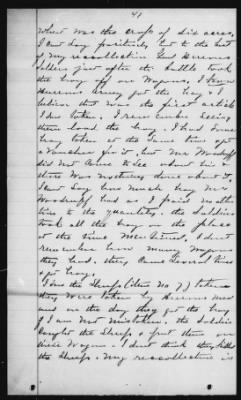 41
What was the crops of six acres,
I can't say positively, but to the best
of my recollection Genl Herrons
soldiers just after the battle took
the hay off on Wagons, I know
Herrons Army got the hay & I
believe that was the first article
I saw taken. I remember seeing
them load the hay. I had some
hay taken at the same time got
a Voucher for it, but Mr Woodruff
did not as there
was nothing done about it
I cant say how much hay Mr
Woodruff had as I paid no atten
tion to the quantity. the Soldiers
took all the hay on the place
at the time mentioned. I dont
remember how many Wagons
they had. they came several times
& got hay.
I saw the Sheep (item No 7) taken
they were taken by Herrons men
and on the day they got the hay
if I am not mistaken. the Soldiers
caught the Sheep & put them in
these Wagons. I dont think they killed
the Sheep. My recollection is